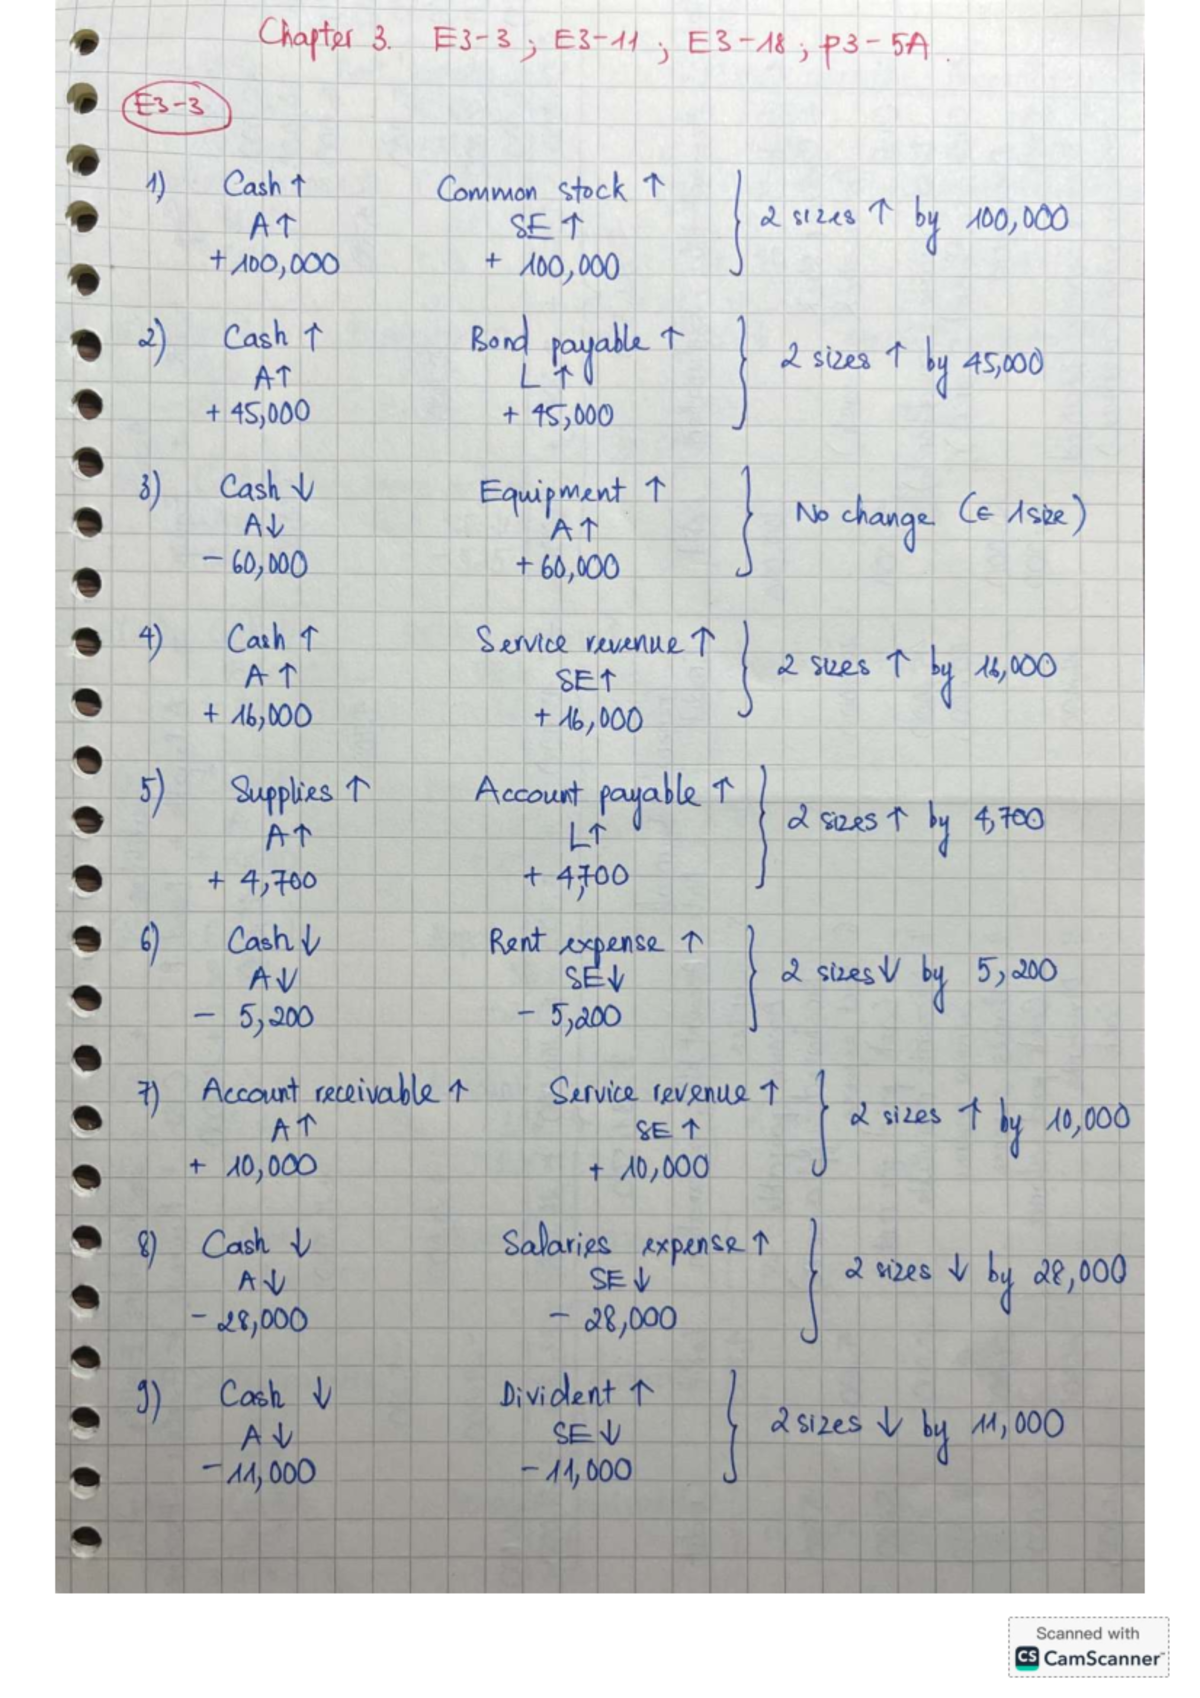 Chapter 3. E3-3; E3-11; E3-18; P3-5A.
E3-3
1) Cash ↑ Common stock ↑
A↑ SE ↑ 2 sizes ↑ by 100,000
+100,000 + 100,000
2) Cash ↑ Bond payable ↑
A↑ L ↑ 2 sizes ↑ by 45,000
+ 45,000 + 45,000
3) Cash ↓ Equipment ↑
A↓ A↑ No change (∈ 1 size)
- 60,000 + 60,000
4) Cash ↑ Service revenue ↑
A ↑ SE↑ 2 sizes ↑ by 16,000
+ 16,000 + 16,000
5) Supplies ↑ Account payable ↑
A↑ L↑ 2 sizes ↑ by 4,700
+ 4,700 + 4,700
6) Cash ↓ Rent expense ↑
A↓ SE↓ 2 sizes↓ by 5,200
- 5,200 - 5,200
7) Account receivable ↑ Service revenue ↑
A↑ SE ↑ 2 sizes ↑ by 10,000
+ 10,000 + 10,000
8) Cash ↓ Salaries expense ↑
A↓ SE↓ 2 sizes ↓ by 28,000
- 28,000 - 28,000
9) Cash ↓ Divident ↑
A↓ SE↓ 2 sizes ↓ by 11,000
-11,000 -11,000
Scanned with
CS CamScanner